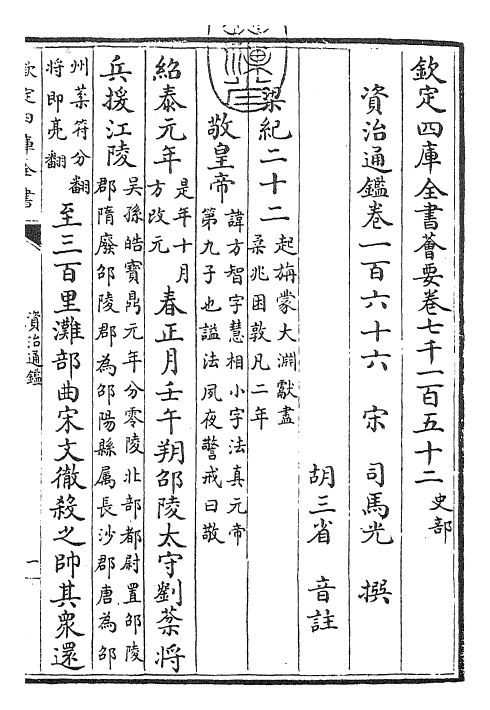 欽定四庫全書薈要卷七千一百五十二 史部
資治通鑑卷一百六十六 宋 司馬光 撰
胡三省 音註
梁紀二十二 起旃蒙大淵獻盡
柔兆困敦凡二年
敬皇帝 諱方智字慧相小字法真元帝
第九子也諡法夙夜警戒曰敬
紹泰元年 是年十月
方改元 春正月壬午朔邵陵太守劉棻將
兵援江陵 吳孫皓寶鼎元年分零陵北部都尉置邵陵
郡隋廢邵陵郡為邵陽縣属長沙郡唐為邵
州棻符分翻
將即亮翻 至三百里灘部曲宋文徹殺之帥其衆還
欽定四庫全書
資治通鑑
一